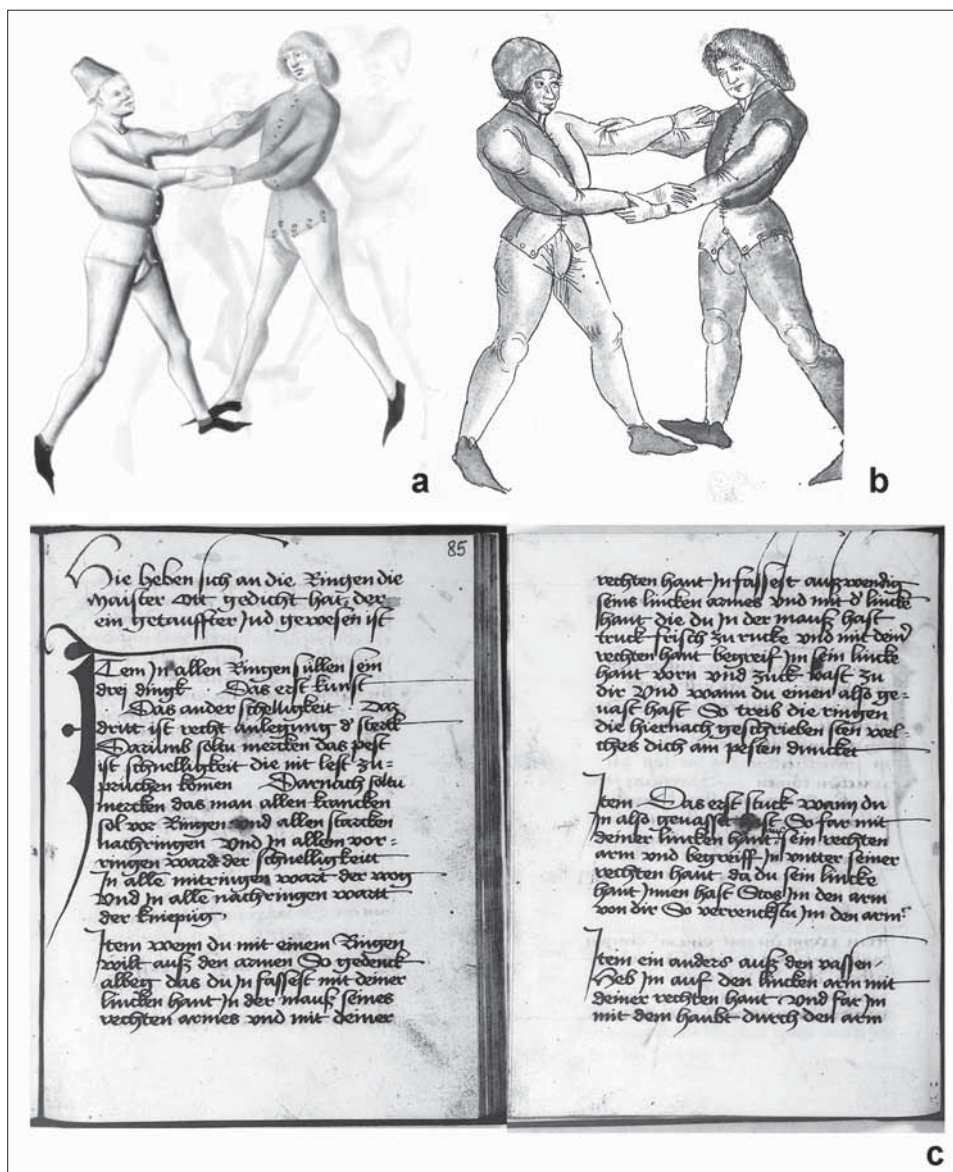 a
b
85
Hie heben sich an die Ringen die
maister ott gedicht hat, der
ein getauffter Jud gewesen ist
Item In allen Ringen süllen sein
drej dingk Das erst kunst
Das ander schelligkeit Daz
dritt ist recht anlegung d' sterck
Darumb soltu mercken das pest
ist schnelligkeit die nit lest zu=
prüchen komen Darnach soltu
mercken das man allen krancken
sol vor Ringen Vnd allen starcken
nachringen Vnd In allem vor=
ringen wart der schnelligkeitt
In alle mitringen wart der wog
Vnd in alle nachringen wartt
der kniepüg
Item wenn du mit einem Ringen
wilt auß den armen So gedenck
albeg das du In fassest mit deiner
lincken hant In der mauß seines
rechten armes vnd mit deiner
rechten hant In fassest außwendig
seins lincken armes Vnd mit d' lincke
hant die du In der mauß hast
truck frisch zu rucke vnd mit deiner
rechten hant begreif Im sein lincke
hant vorn vnd zuck vast zu
dir Vnd wann du einen also ge=
vast hast So treib die ringen
die hiernach geschrieben sten wel=
ches dich am pesten duncket
Item Das erst stuck wann du
In also gevasset hast So far mit
deiner lincken hant auf sein rechten
arm vnd begreiff In vntter seiner
rechten hant da du sein lincke
hant Innen hast Stos Im den arm
von dir So verrenckstu Im den arm
Item ein anders auß den vassen
Heb Im auf den lincken arm mit
deiner rechten hant Vnd far Im
mit dem haubt durch den arm
c